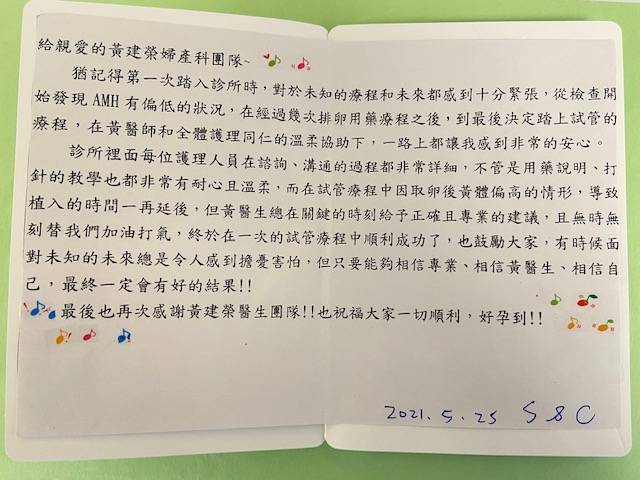 給親愛的黃建榮婦產科團隊、
猶記得第一次踏入診所時，對於未知的療程和未來都感到十分緊張，從檢查開
始發現 AMH 有偏低的狀況，在經過幾次排卵用藥療程之後，到最後決定踏上試管的
療程，在黃醫師和全體護理同仁的溫柔協助下，一路上都讓我感到非常的安心。
診所裡面每位護理人員在諮詢、溝通的過程都非常詳細，不管是用藥說明、打
針的教學也都非常有耐心且溫柔，而在試管療程中因取卵後黃體偏高的情形，導致
植入的時間一再延後，但黃醫生總在關鍵的時刻給予正確且專業的建議，且無時無
刻替我們加油打氣，終於在一次的試管療程中順利成功了，也鼓勵大家，有時候面
對未知的未來總是令人感到擔憂害怕，但只要能夠相信專業、相信黃醫生、相信自
己，最終一定會有好的結果!!
最後也再次感謝黃建榮醫生團隊!!也祝福大家一切順利，好孕到!!
2021.5.25 S8C